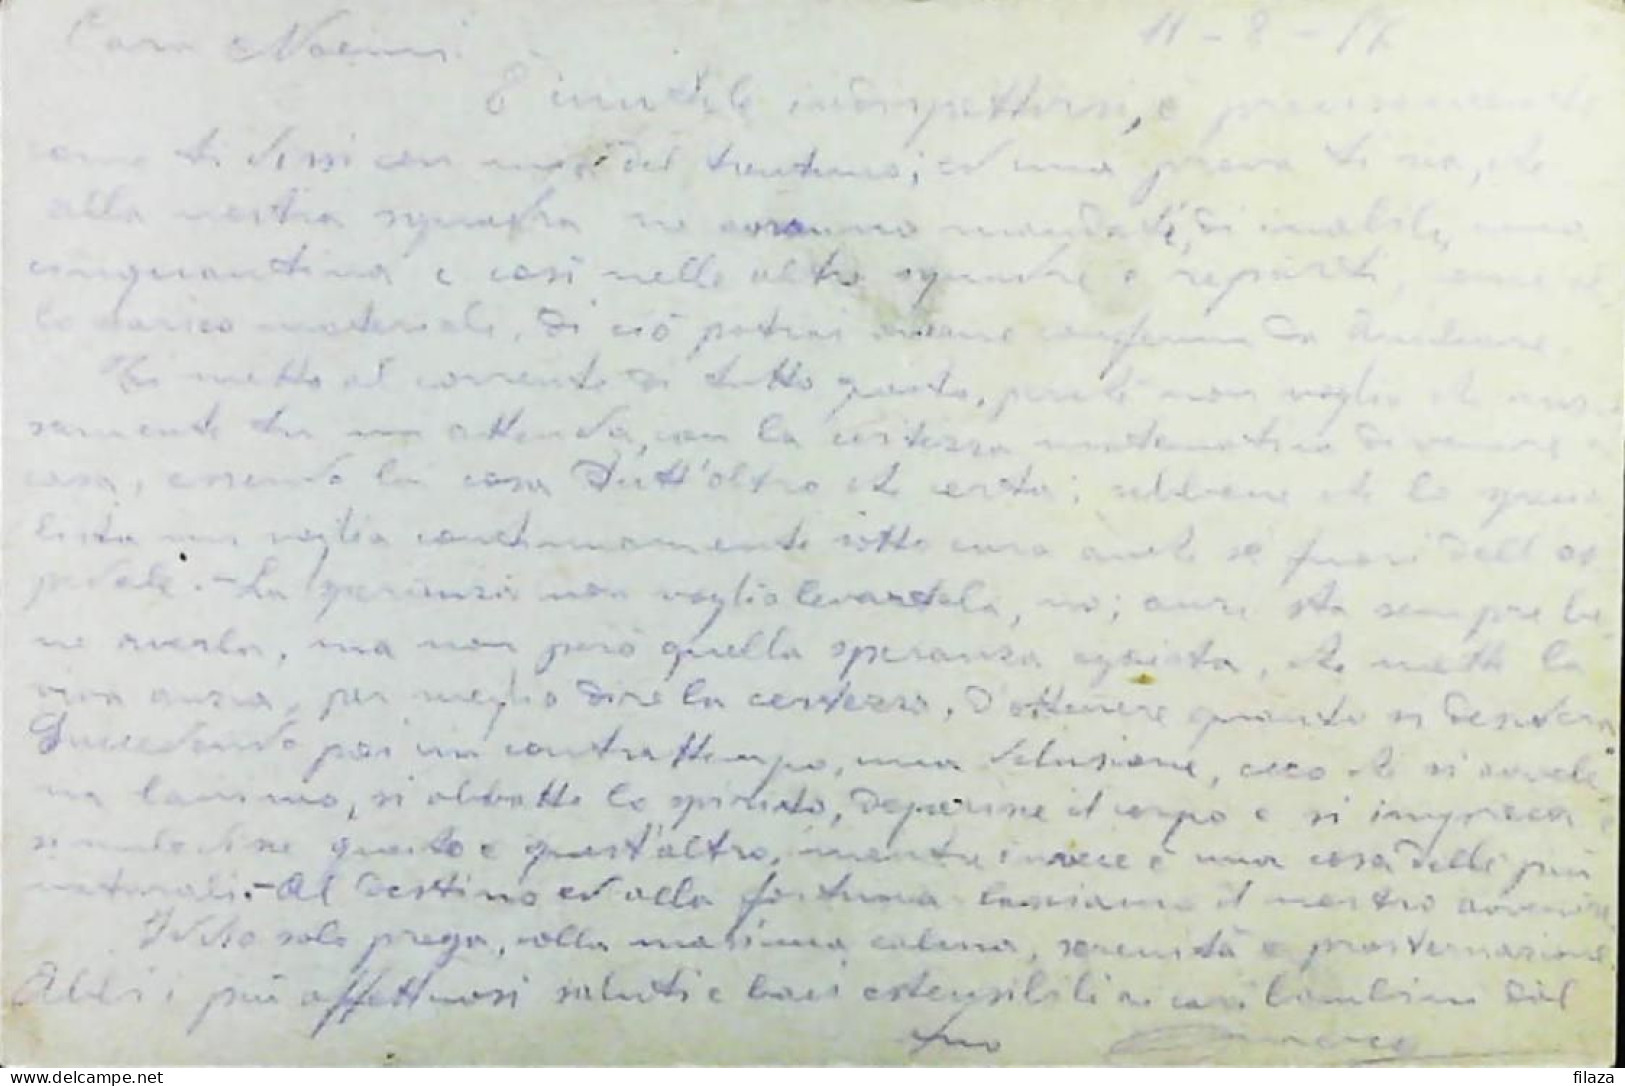 Cara Noemi. 11-8-17
È inutile indispettirsi, è precisamente
come ti dissi con mez. del trentino; ed una prova ti sia, che
alla nostra squadra ne saranno mandati, di inabili, una
cinquantina e così nelle altre squadre e reparti, come
lo carico materiale, di ciò potrai avere conferma da
Ti metto al corrente di tutto questo, perchè non voglio che
samente tu mi attenda, con la certezza matematica di venire a
casa, essendo la cosa tutt'altro che certa; sebbene che lo specia
lista mi voglia continuamente sotto cura anche se fuori dell'os
pedale.- La speranza non voglio levartela, no; anzi sta sempre be
ne averla, ma non però quella speranza egoista, che mette la
viva ansia, per meglio dire la certezza, d'ottenere quanto si desidera
Succedendo poi un contrattempo, una delusione, ecco che si avvele
na l'animo, si abbatte lo spirito, deperisce il corpo e si impreca e
si maledisce questo e quest'altro, mentre invece è una cosa delle più
naturali.- Al destino ed alla fortuna lasciamo il nostro avvenire
Iddio solo prega, colla massima calma, serenità e prosternazione.
Abbi i più affettuosi saluti e baci estensibili ai cari bambini dal
tuo
filaza